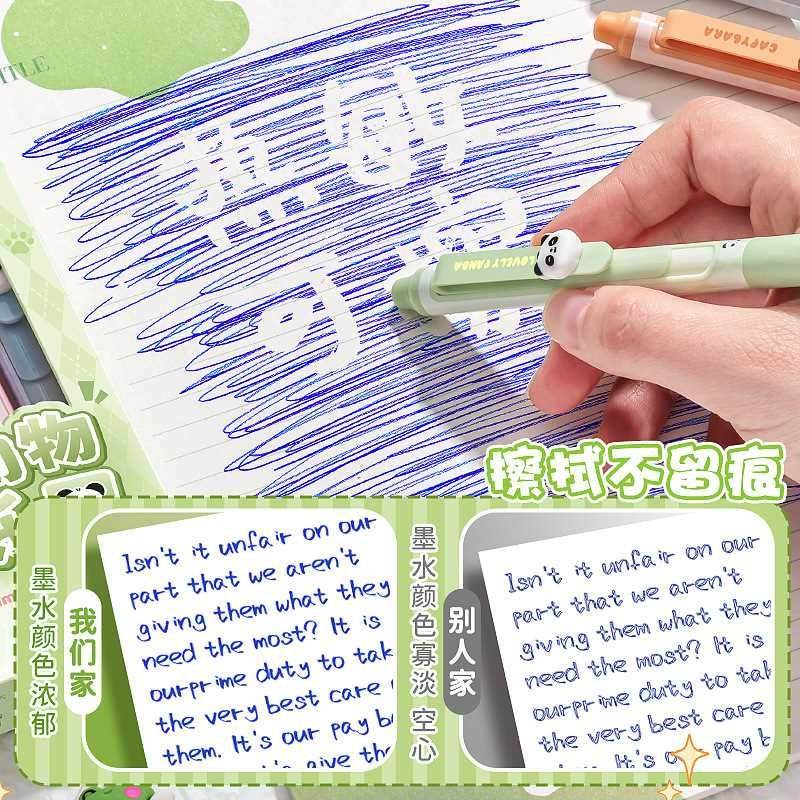 CAPYBARA
LOVELY PANDA
擦拭不留痕
墨水颜色浓郁
我们家
Isn't it unfair on our
part that we aren't
giving them what they
need the most? It is
ourprime duty to tak
the very best care
them. It's our pay b
give the
墨水颜色寡淡 空心
别人家
Isn't it unfair on our
part that we aren't
giving them what they
need the most? It is
ourprime duty to tak
the very best care
pay b